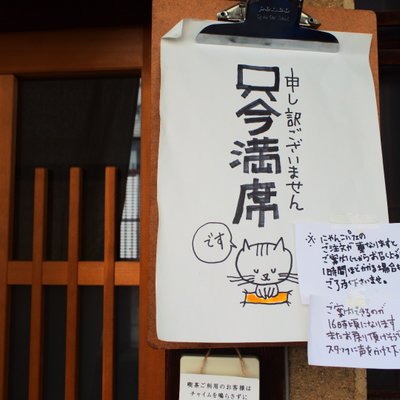 申し訳ございません
只今満席
です
※にゃんこパフェの
ご注文が重なりますと
1時間ほどかかる場合も
ご了承下さいませ。
ご案内できるのが
16時頃になります
またお戻り頂けそうで
スタッフに声をかけて下
喫茶ご利用のお客様は
チャイムを鳴らさずに